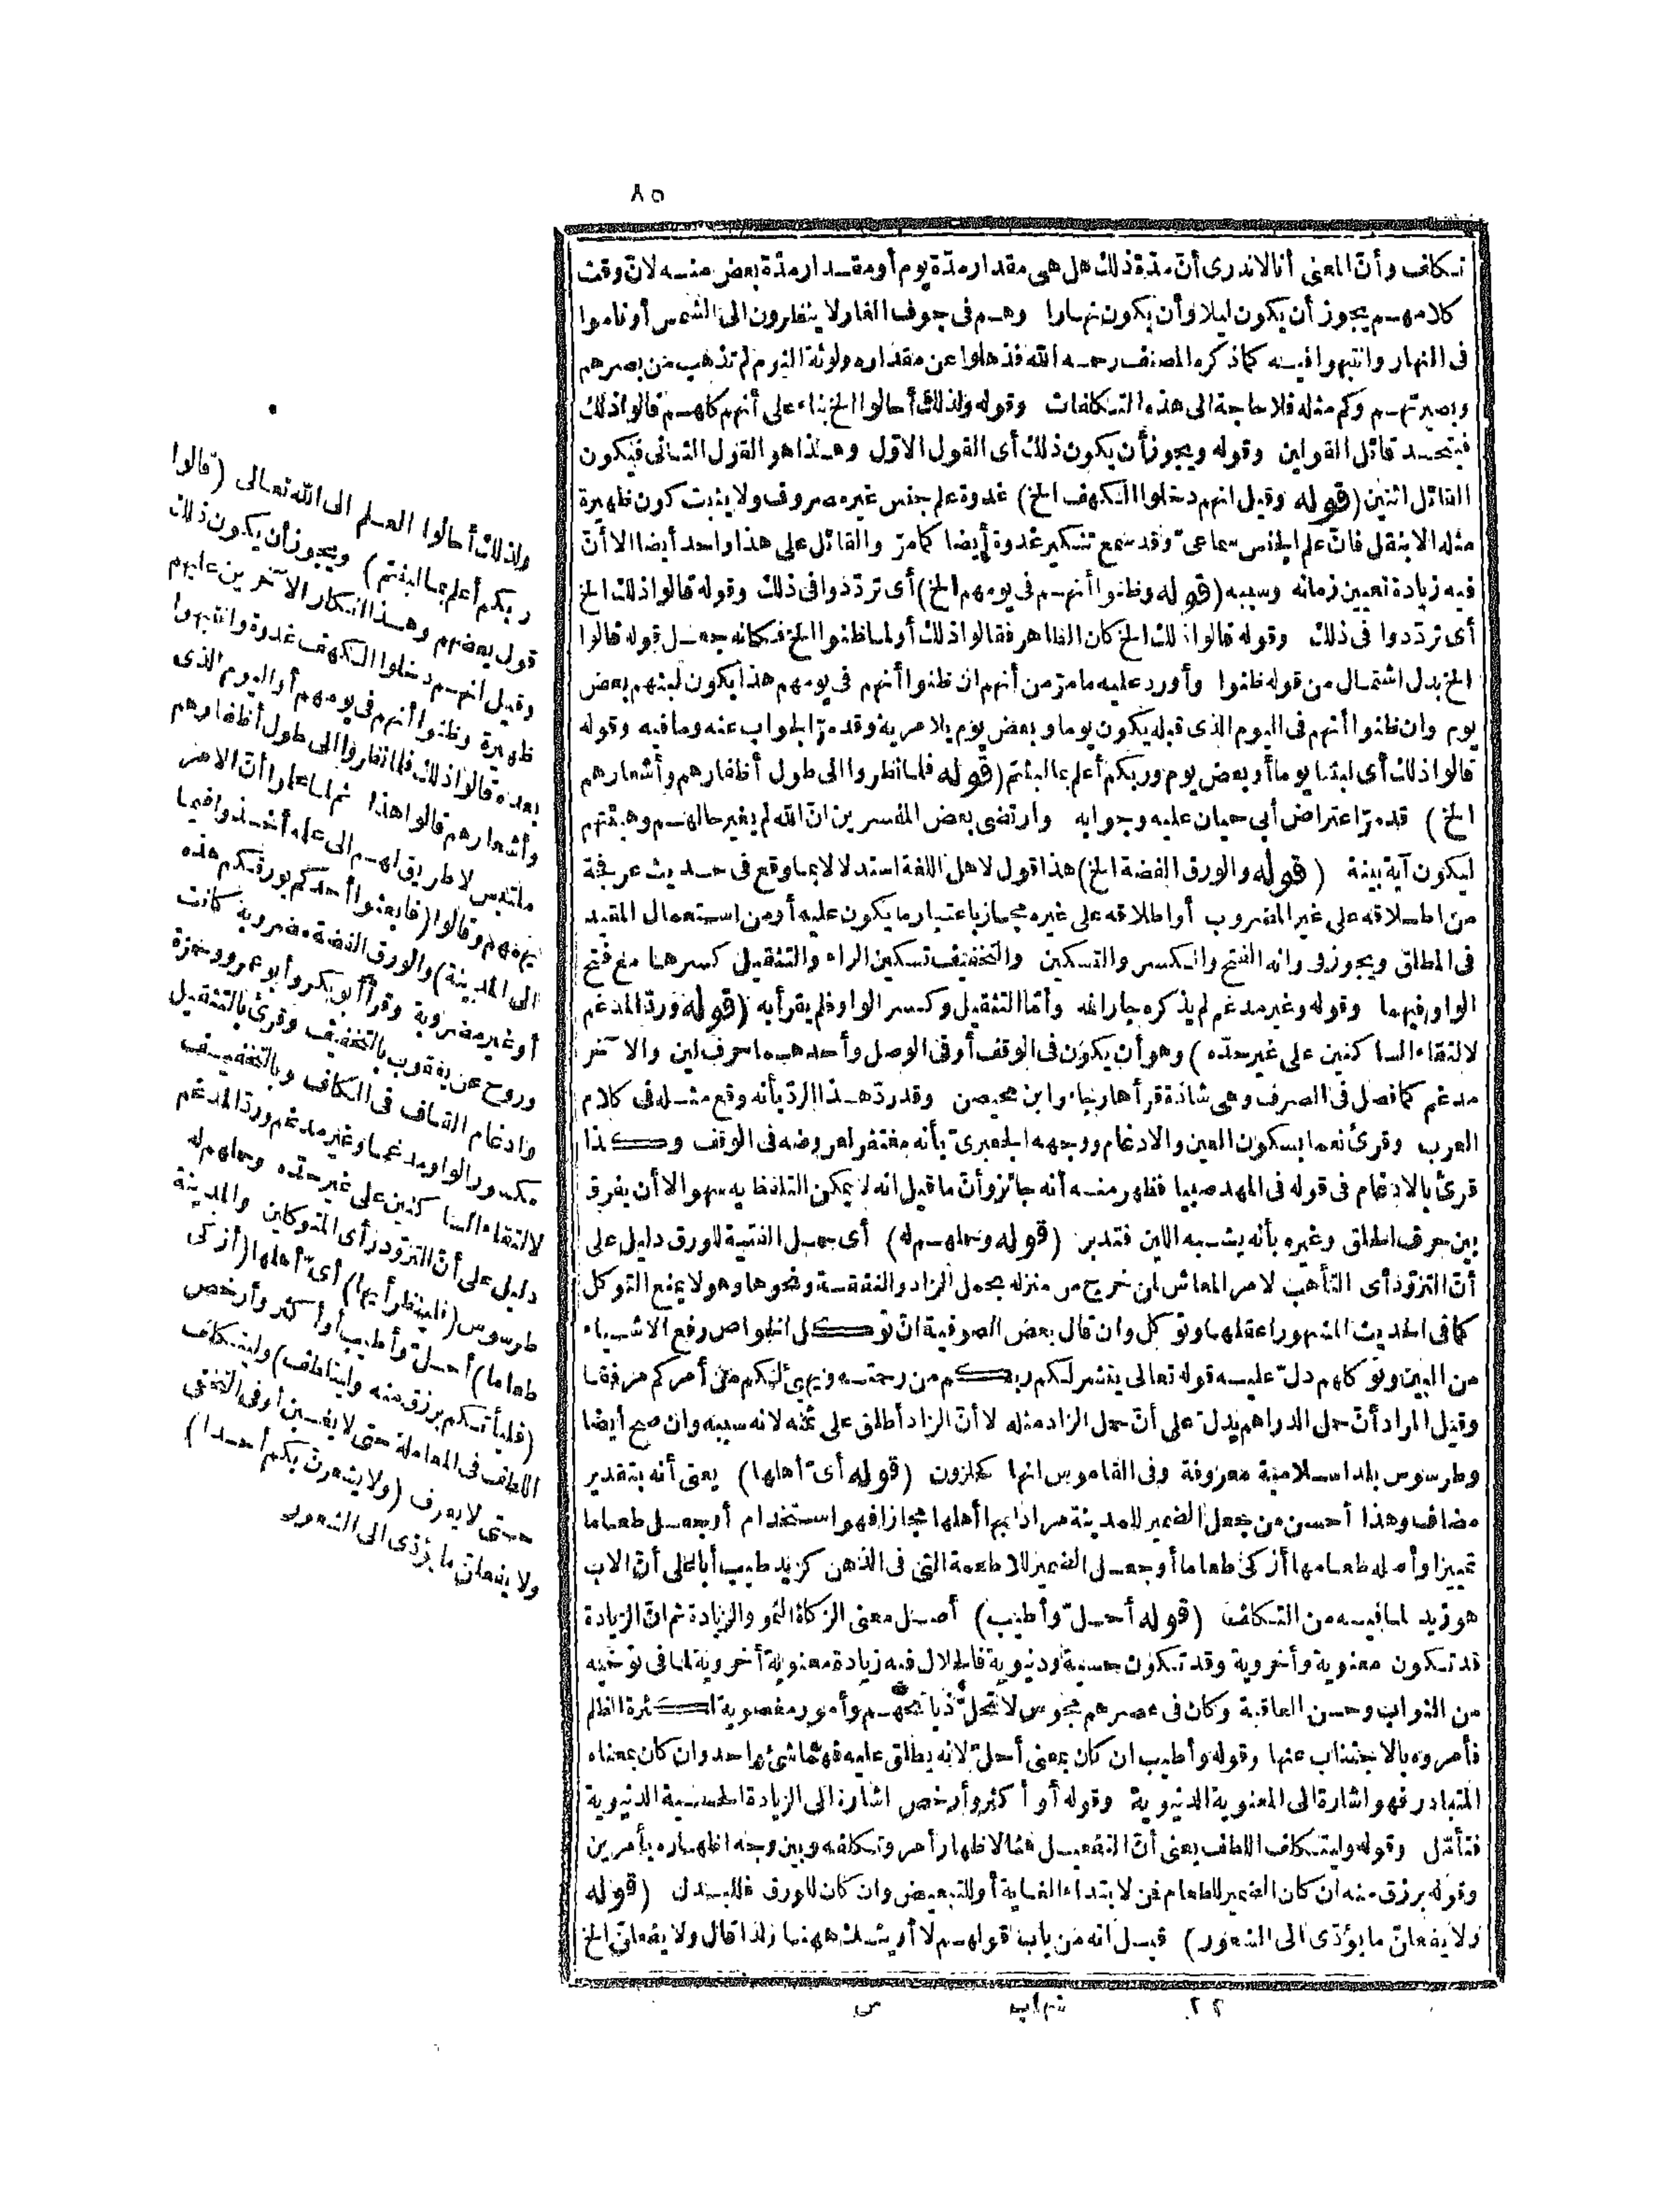 ٨٥
تكلف وأن المعنى أنا لا ندري أنّ مدّة ذلك هل هي مقدار مدّة يوم أو مقدار مدّة بعض منه لانّ وقت
كلامهم يجوز أن يكون ليلا وأن يكون نهارا وهم في جوف الغار لا ينظرون الى الشمس أو ناموا
في النهار وانتبهوا فيه كما ذكره المصنف رحمه الله فذهلوا عن مقداره ولوثة النوم لم تذهب من بصرهم
وبصيرتهم وكم مثله فلا حاجة الى هذه التكلفات وقوله ولذلك أحالوا الخ بناء على أنهم كلهم قالوا ذلك
فيتحد قائل القولين وقوله ويجوز أن يكون ذلك أي القول الاوّل وهذا هو القول الثاني فيكون
القائل اثنين (قوله وقيل انهم دخلوا الكهف الخ) غدوة علم جنس غير مصروف ولا يثبت كون ظهيرة
مثله الا بنقل فانّ علم الجنس سماعيّ وقد سمع تنكير غدوة أيضا كما مرّ والقائل على هذا واحد أيضا الا أنّ
فيه زيادة تعيين زمانه وسببه (قوله وظنوا أنهم في يومهم الخ) أي تردّدوا في ذلك وقوله قالوا ذلك الخ
أي تردّدوا في ذلك وقوله قالوا ذلك الخ كان الظاهر فقالوا ذلك أو لما ظنوا الخ فكانه جعل قوله قالوا
الخ بدل اشتمال من قوله ظنوا وأورد عليه ما مرّ من أنهم ان ظنوا أنهم في يومهم هذا يكون لبثهم بعض
يوم وان ظنوا أنهم في اليوم الذي قبله يكون يوما وبعض يوم بلا مرية وقد مرّ الجواب عنه وما فيه وقوله
قالوا ذلك أي لبثنا يوما أو بعض يوم وربكم أعلم بما لبثتم (قوله فلما نظروا الى طول أظفارهم وأشعارهم
الخ) قد مرّ اعتراض أبي حيان عليه وجوابه وارتضى بعض المفسرين انّ الله لم يغير حالهم وهيئتهم
ليكون آية بينة (قوله والورق الفضة الخ) هذا قول لاهل اللغة استدلالا بما وقع في حديث عرفجة
من اطلاقه على غير المضروب أو اطلاقه على غيره مجاز باعتبار ما يكون عليه أو من استعمال المقيد
في المطلق ويجوز في رائه الفتح والكسر والتسكين والتخفيف تسكين الراء والتثقيل كسرها مع فتح
الواو فيهما وقوله وغير مدغم لم يذكره جار الله وأمّا التثقيل وكسر الواو فلم يقرأ به (قوله وردّ المدغم
لالتقاء الساكنين على غير حدّه) وهو أن يكون في الوقف أو في الوصل وأحدهما حرف لين والآخر
مدغم كما فصل في الصرف وهي شاذة قرأ بها رجاء وابن محيصن وقد ردّ هذا الردّ بأنه وقع مثله في كلام
العرب وقرئ نعما بسكون العين والادغام ووجهه الجعبريّ بأنه مغتفر لعروضه في الوقف وكذا
قرئ بالادغام في قوله في المهد صبيا فظهر منه أنه جائز وأنّ ما قيل انه لا يمكن التلفظ به سهو الا أن يفرق
بين حرف الحلق وغيره بأنه يشبه اللين فتدبر (قوله وحملهم له) أي حمل الفتية للورق دليل على
أنّ التزوّد أي التأهب لامر المعاش لمن خرج من منزله بحمل الزاد والنفقة ونحوها وهو لا يمنع التوكل
كما في الحديث المشهور اعقلها وتوكل وان قال بعض الصوفية انّ توكل الخواص رفع الاشياء
من البين وتوكلهم دلّ عليه قوله تعالى ينشر لكم ربكم من رحمته ويهيئ لكم من أمركم مرفقا
وقيل المراد أنّ حمل الدراهم يدلّ على أنّ حمل الزاد مثله لا أنّ الزاد أطلق على ثمنه لانه سببه وان صح أيضا
وطرسوس بلد اسلامية معروفة وفي القاموس انها كحلزون (قوله أيّ أهلها) يعني أنه بتقدير
مضاف وهذا أحسن من جعل الضمير للمدينة مرادا بها أهلها مجازا فهو استخدام أو جعل طعاما
تمييزا وأصله طعامها أزكى طعاما أو جعل الضمير للاطعمة التي في الذهن كزيد طيب أبا على أنّ الاب
هو زيد لما فيه من التكلف (قوله أحلّ وأطيب) أصل معنى الزكاة النمو والزيادة ثم انّ الزيادة
قد تكون معنوية وأخروية وقد تكون حسية ودنيوية فالحلال فيه زيادة معنوية أخروية لما في توخيه
من الثواب وحسن العاقبة وكان في عصرهم مجوس لا تحلّ ذبائحهم وأمور مغصوبة لكثرة الظلم
فأمروه بالاجتناب عنها وقوله وأطيب ان كان بمعنى أحلّ لانه يطلق عليه فهما شئ واحد وان كان بمعناه
المتبادر فهو اشارة الى المعنوية الدنيوية وقوله أو أكثر وأرخص اشارة الى الزيادة الحسية الدنيوية
فتأمّل وقوله وليتكلف اللطف يعني أنّ التفعيل هنا لاظهار أمر وتكلفه وبين وجه اظهاره بأمرين
وقوله برزق منه ان كان الضمير للطعام فمن لابتداء الغاية أو للتبعيض وان كان للورق فللبدل (قوله
ولا يفعلنّ ما يؤدّى الى الشعور) قيل انه من باب قولهم لا أرينك ههنا ولذا قال ولا يفعلنّ الخ
ولذلك أحالوا العلم الى الله تعالى (قالوا
ربكم أعلم بما لبثتم) ويجوز أن يكون ذلك
قول بعضهم وهذا انكار الآخرين عليهم
وقيل انهم دخلوا الكهف غدوة وانتبهوا
ظهيرة وظنوا أنهم في يومهم أو اليوم الذي
بعده قالوا ذلك فلما نظروا الى طول أظفارهم
وأشعارهم قالوا هذا ثم لما علموا أنّ الامر
ملتبس لا طريق لهم الى علمه أخذوا فيما
يهمهم وقالوا (فابعثوا أحدكم بورقكم هذه
الى المدينة) والورق الفضة مضروبة كانت
أو غير مضروبة وقرأ أبو بكر وأبو عمرو وحمزة
وروح عن يعقوب بالتخفيف وقرئ بالتثقيل
وادغام القاف في الكاف وبالتخفيف
مكسور الواو مدغما وغير مدغم وردّ المدغم
لالتقاء الساكنين على غير حدّه وحملهم له
دليل على أنّ التزوّد رأى المتوكلين والمدينة
طرسوس (فلينظر أيها) أيّ أهلها (أزكى
طعاما) أحلّ وأطيب أو أكثر وأرخص
(فليأتكم برزق منه وليتلطف) وليتكلف
اللطف في المعاملة حتى لا يغبن أو في التخفي
حتى لا يعرف (ولا يشعرنّ بكم أحدا)
ولا يفعلنّ ما يؤدّى الى الشعور
٢٢ شهاب س